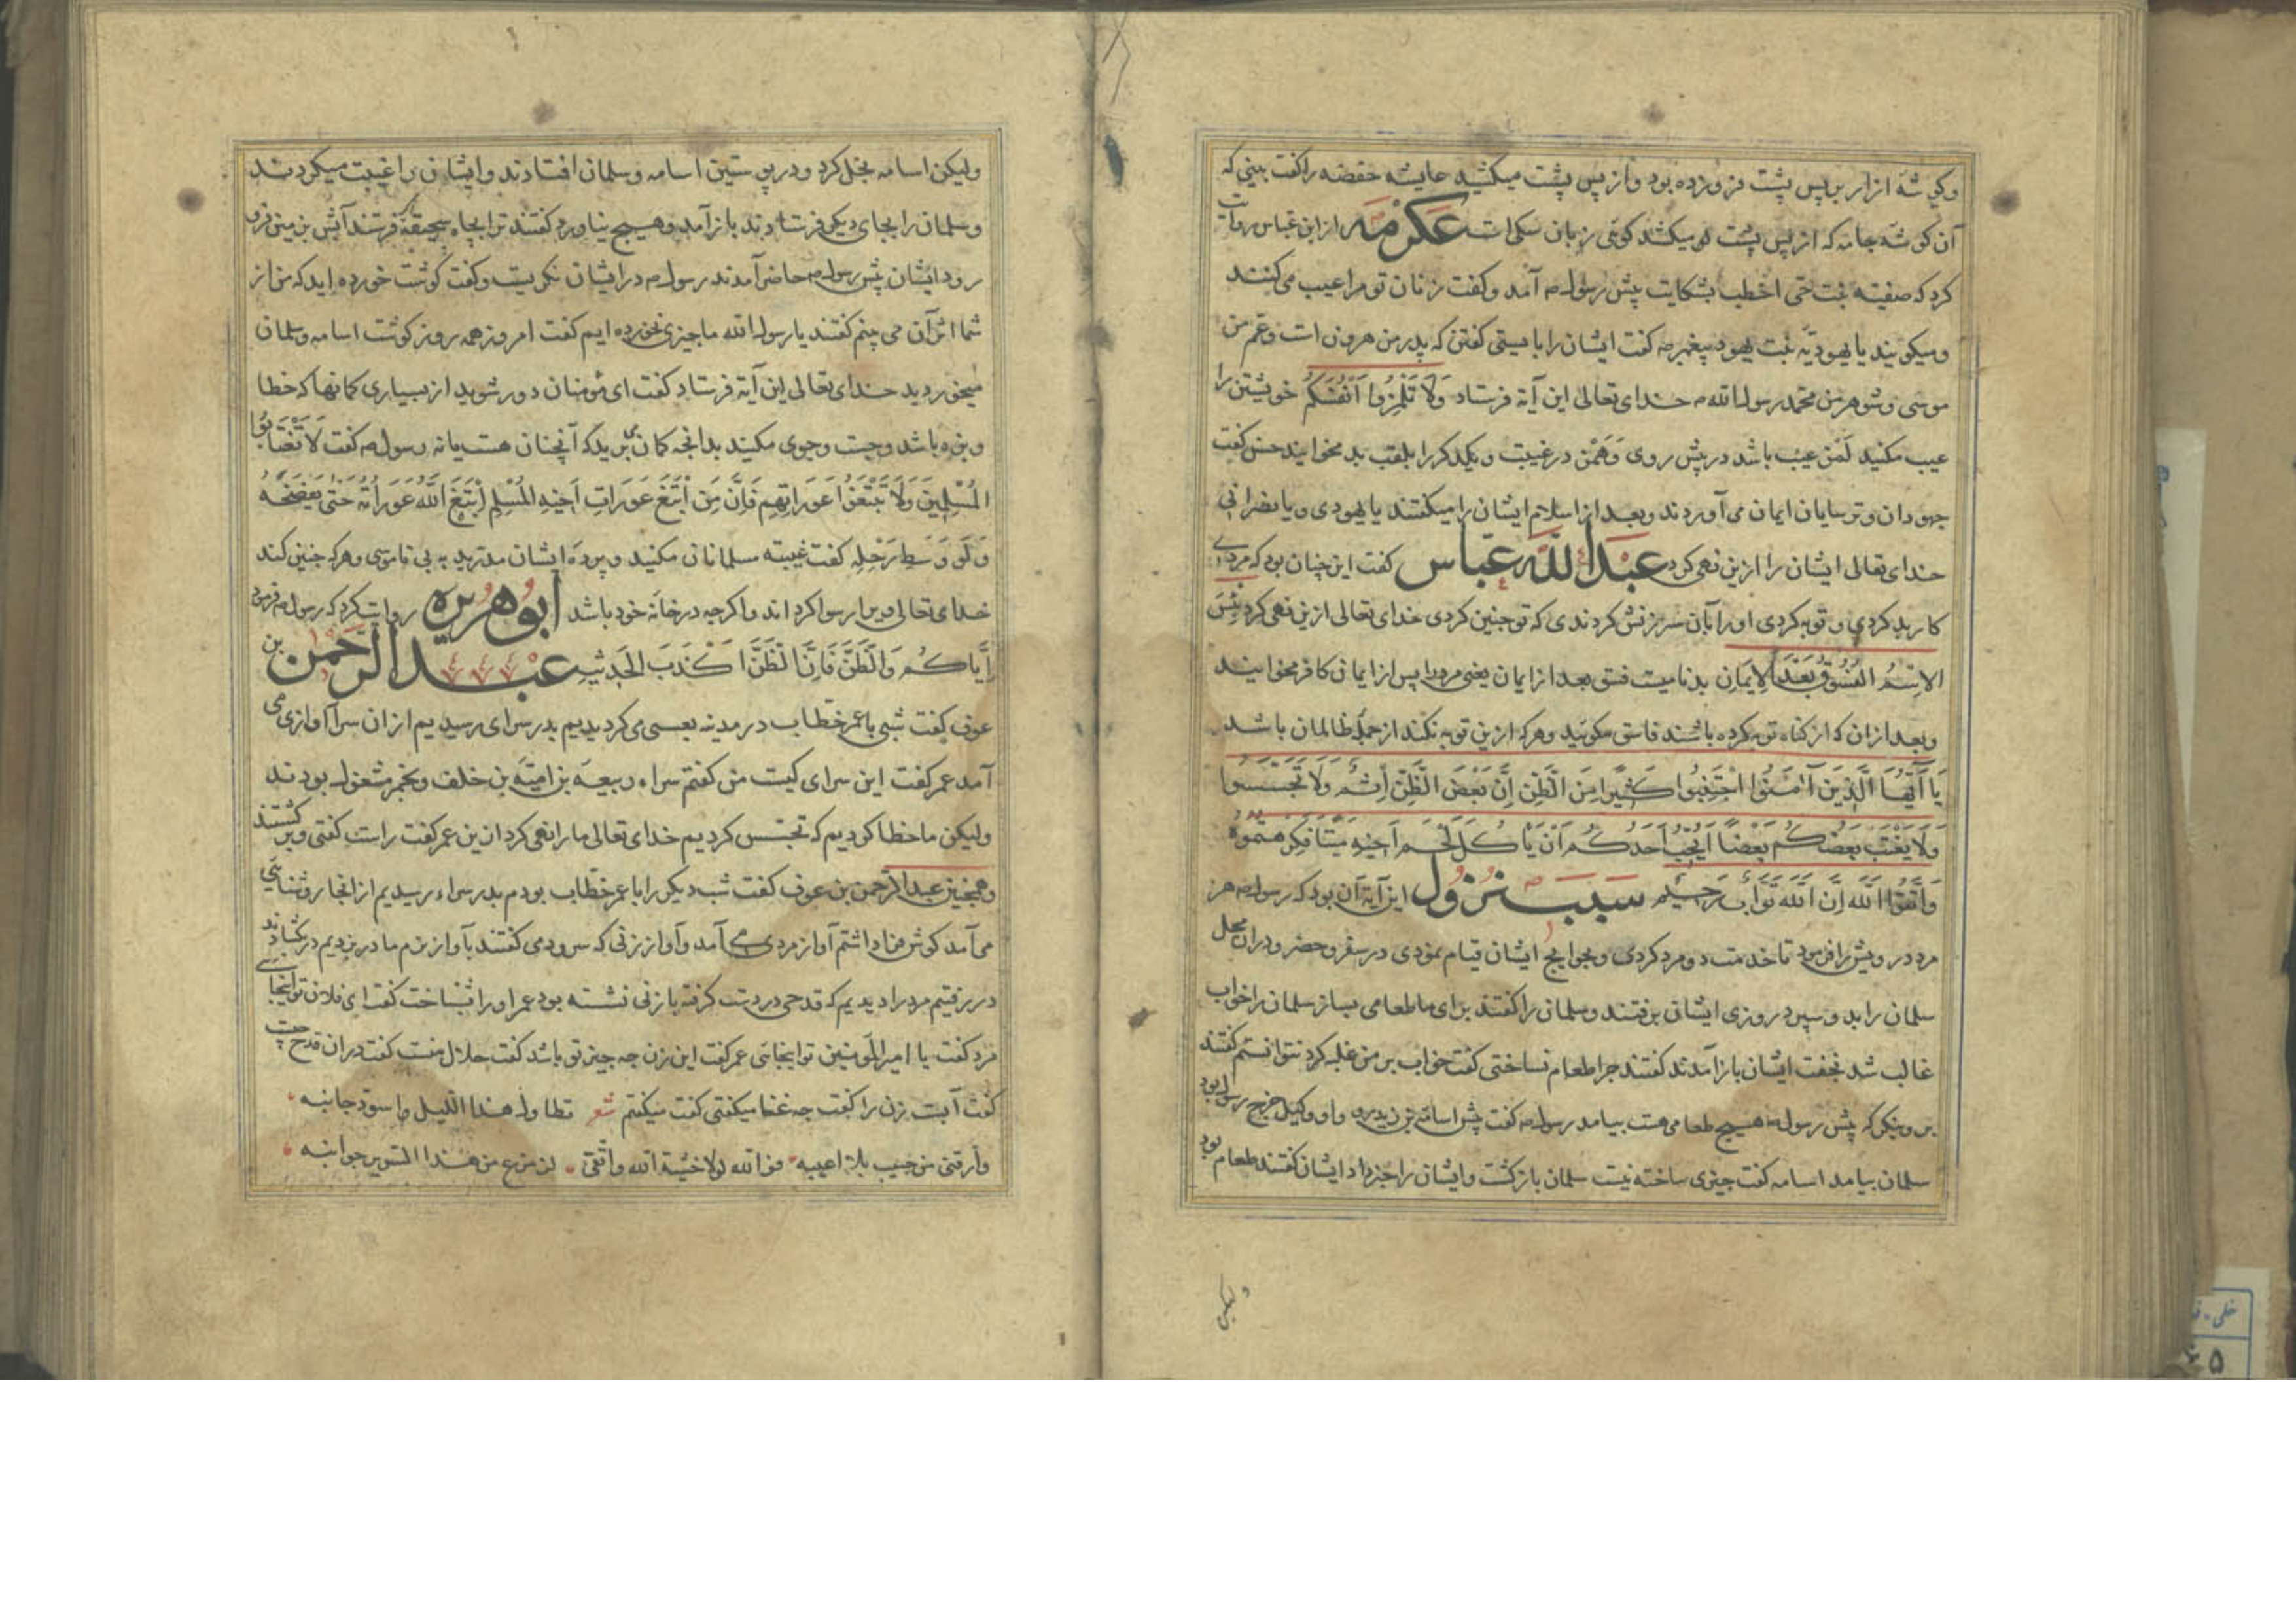 وکوشهٔ ازار بر پس پشت فروزده بود و از پس پشت میکشید عایشه حفصه را کفت بینی که
آن کوشهٔ جامه که از پس پشت او میکشد کوئی زبان سکی است عکرمه از ابن عباس روایت
کرد که صفیه بنت حی اخطب بشکایت پیش رسول ص آمد و کفت زنان تو مرا عیب می کنند
و میکویند یا یهودیه بنت یهود پیغمبر ص کفت ایشان را بایستی کفتن که پدر من هرون است و عم من
موسی و شوهر من محمد رسول الله ص خدای تعالی این آیة فرستاد وَلَا تَلْمِزُوا أَنْفُسَكُمْ خویشتن را
عیب مکنید لمز عیب باشد در پیش روی و همز در غیبت و یکدکر را بلقب بد مخوانید حسن کفت
جهودان و ترسایان ایمان می آوردند و بعد از اسلام ایشان را میکفتند یا یهودی و یا نصرانی
خدای تعالی ایشان را ازین نهی کرد عبد الله عباس کفت این چنان بود که مردی
کار بد کردی و توبه کردی او را بآن سرزنش کردندی که تو چنین کردی خدای تعالی ازین نهی کرد بِئْسَ
الِاسْمُ الْفُسُوقُ بَعْدَ الْإِيمَانِ بد نامیست فسق بعد از ایمان یعنی مرد را پس از ایمان کافر مخوانید
و بعد ازان که از کناه توبه کرده باشند فاسق مکوئید و هر که ازین توبه نکند از جملهٔ ظالمان باشد
يَا أَيُّهَا الَّذِينَ آمَنُوا اجْتَنِبُوا كَثِيرًا مِنَ الظَّنِّ إِنَّ بَعْضَ الظَّنِّ إِثْمٌ وَلَا تَجَسَّسُوا
وَلَا يَغْتَبْ بَعْضُكُمْ بَعْضًا أَيُحِبُّ أَحَدُكُمْ أَنْ يَأْكُلَ لَحْمَ أَخِيهِ مَيْتًا فَكَرِهْتُمُوهُ
وَاتَّقُوا اللَّهَ إِنَّ اللَّهَ تَوَّابٌ رَحِيمٌ سبب نزول این آیة آن بود که رسول ص هر
مرد درویش را فرمود تا خدمت دو مرد کردی و بحوایج ایشان قیام نمودی در سفر و حضر و دران محل
سلمان را بدو سپرد روزی ایشان برفتند و سلمان را کفتند برای ما طعامی بساز سلمان را خواب
غالب شد بخفت ایشان باز آمدند کفتند چرا طعام نساختی کفت خواب بر من غلبه کرد نتوانستم کفتند
برو بنکر که پیش رسول ص هیچ طعامی هست بیامد رسول ص کفت پیش اسامة بن زید رو و او وکیل خرج رسول بود
سلمان بیامد اسامه کفت چیزی ساخته نیست سلمان باز کشت و ایشان را خبر داد ایشان کفتند طعام بود
ولیکن
ولیکن اسامه بخل کرد و در پوستین اسامه و سلمان افتادند و ایشان را غیبت میکردند
و سلمان را بجای دیکر فرستادند باز آمد و هیچ نیاورد کفتند ترا بچاه سمیحه فرستند آبش بزمین فرو
رود ایشان پیش رسول ص حاضر آمدند رسول ص در ایشان نکریست و کفت کوشت خورده اید که من از
شما اثر آن می بینم کفتند یا رسول الله ما چیزی نخورده ایم کفت امروز همه روز کوشت اسامه و سلمان
میخوردید خدای تعالی این آیة فرستاد کفت ای مؤمنان دور شوید از بسیاری کمانها که خطا
و بزه باشد و جست و جوی مکنید بدانچه کمان می برید که آنچنان هست یا نه رسول ص کفت لَا تَغْتَابُوا
الْمُسْلِمِينَ وَلَا تَتَّبِعُوا عَوَرَاتِهِمْ فَإِنَّ مَنِ اتَّبَعَ عَوَرَاتِ أَخِيهِ الْمُسْلِمِ اتَّبَعَ اللَّهُ عَوَرَاتَهُ حَتَّى يَفْضَحَهُ
وَلَوْ وَسَطِ رَحْلِهِ کفت غیبته مسلمانان مکنید و پردهٔ ایشان مدرید به بی ناموسی و هر که چنین کند
خدای تعالی ویرا رسوا کرداند و اکر چه در خانهٔ خود باشد ابو هریره روایت کرد که رسول ص فرمود
إِيَّاكُمْ وَالظَّنَّ فَإِنَّ الظَّنَّ أَكْذَبُ الْحَدِيثِ عبد الرحمن بن
عوف کفت شبی با عمر خطاب در مدینه بعسس می کردیدیم بدر سرای رسیدیم ازان سرا آوازی می
آمد عمر کفت این سرای کیست من کفتم سراء ربیعة بن امیة بن خلف و بخمر مشغول بودند
ولیکن ما خطا کردیم که تجسس کردیم خدای تعالی ما را نهی کرد ازین عمر کفت راست کفتی و بر کشتند
و همچنین عبد الرحمن بن عوف کفت شب دیکر با عمر خطاب بودم بدر سراء رسیدیم از انجا روشنایی
می آمد کوش فرا داشتم آواز مردی می آمد و آواز زنی که سرود می کفتند بآواز نرم ما در بزدیم در بکشادند
در رفتیم مرد را دیدیم که قدحی در دست کرفته با زنی نشسته بود عمر او را شناخت کفت ای فلان تو اینجایی
مرد کفت یا امیر المومنین تو اینجائی عمر کفت این زن چه چیز تو باشد کفت حلال منست کفت دران قدح چیست
کفت آبست زن را کفت چه غنا میکفتی کفت میکفتم شعر تطاول هذا اللیل واسود جانبه
وارقنی من حبیب الاعبه فوالله لولا خشیة الله واتقی لزعزع من هذا السریر جوانبه